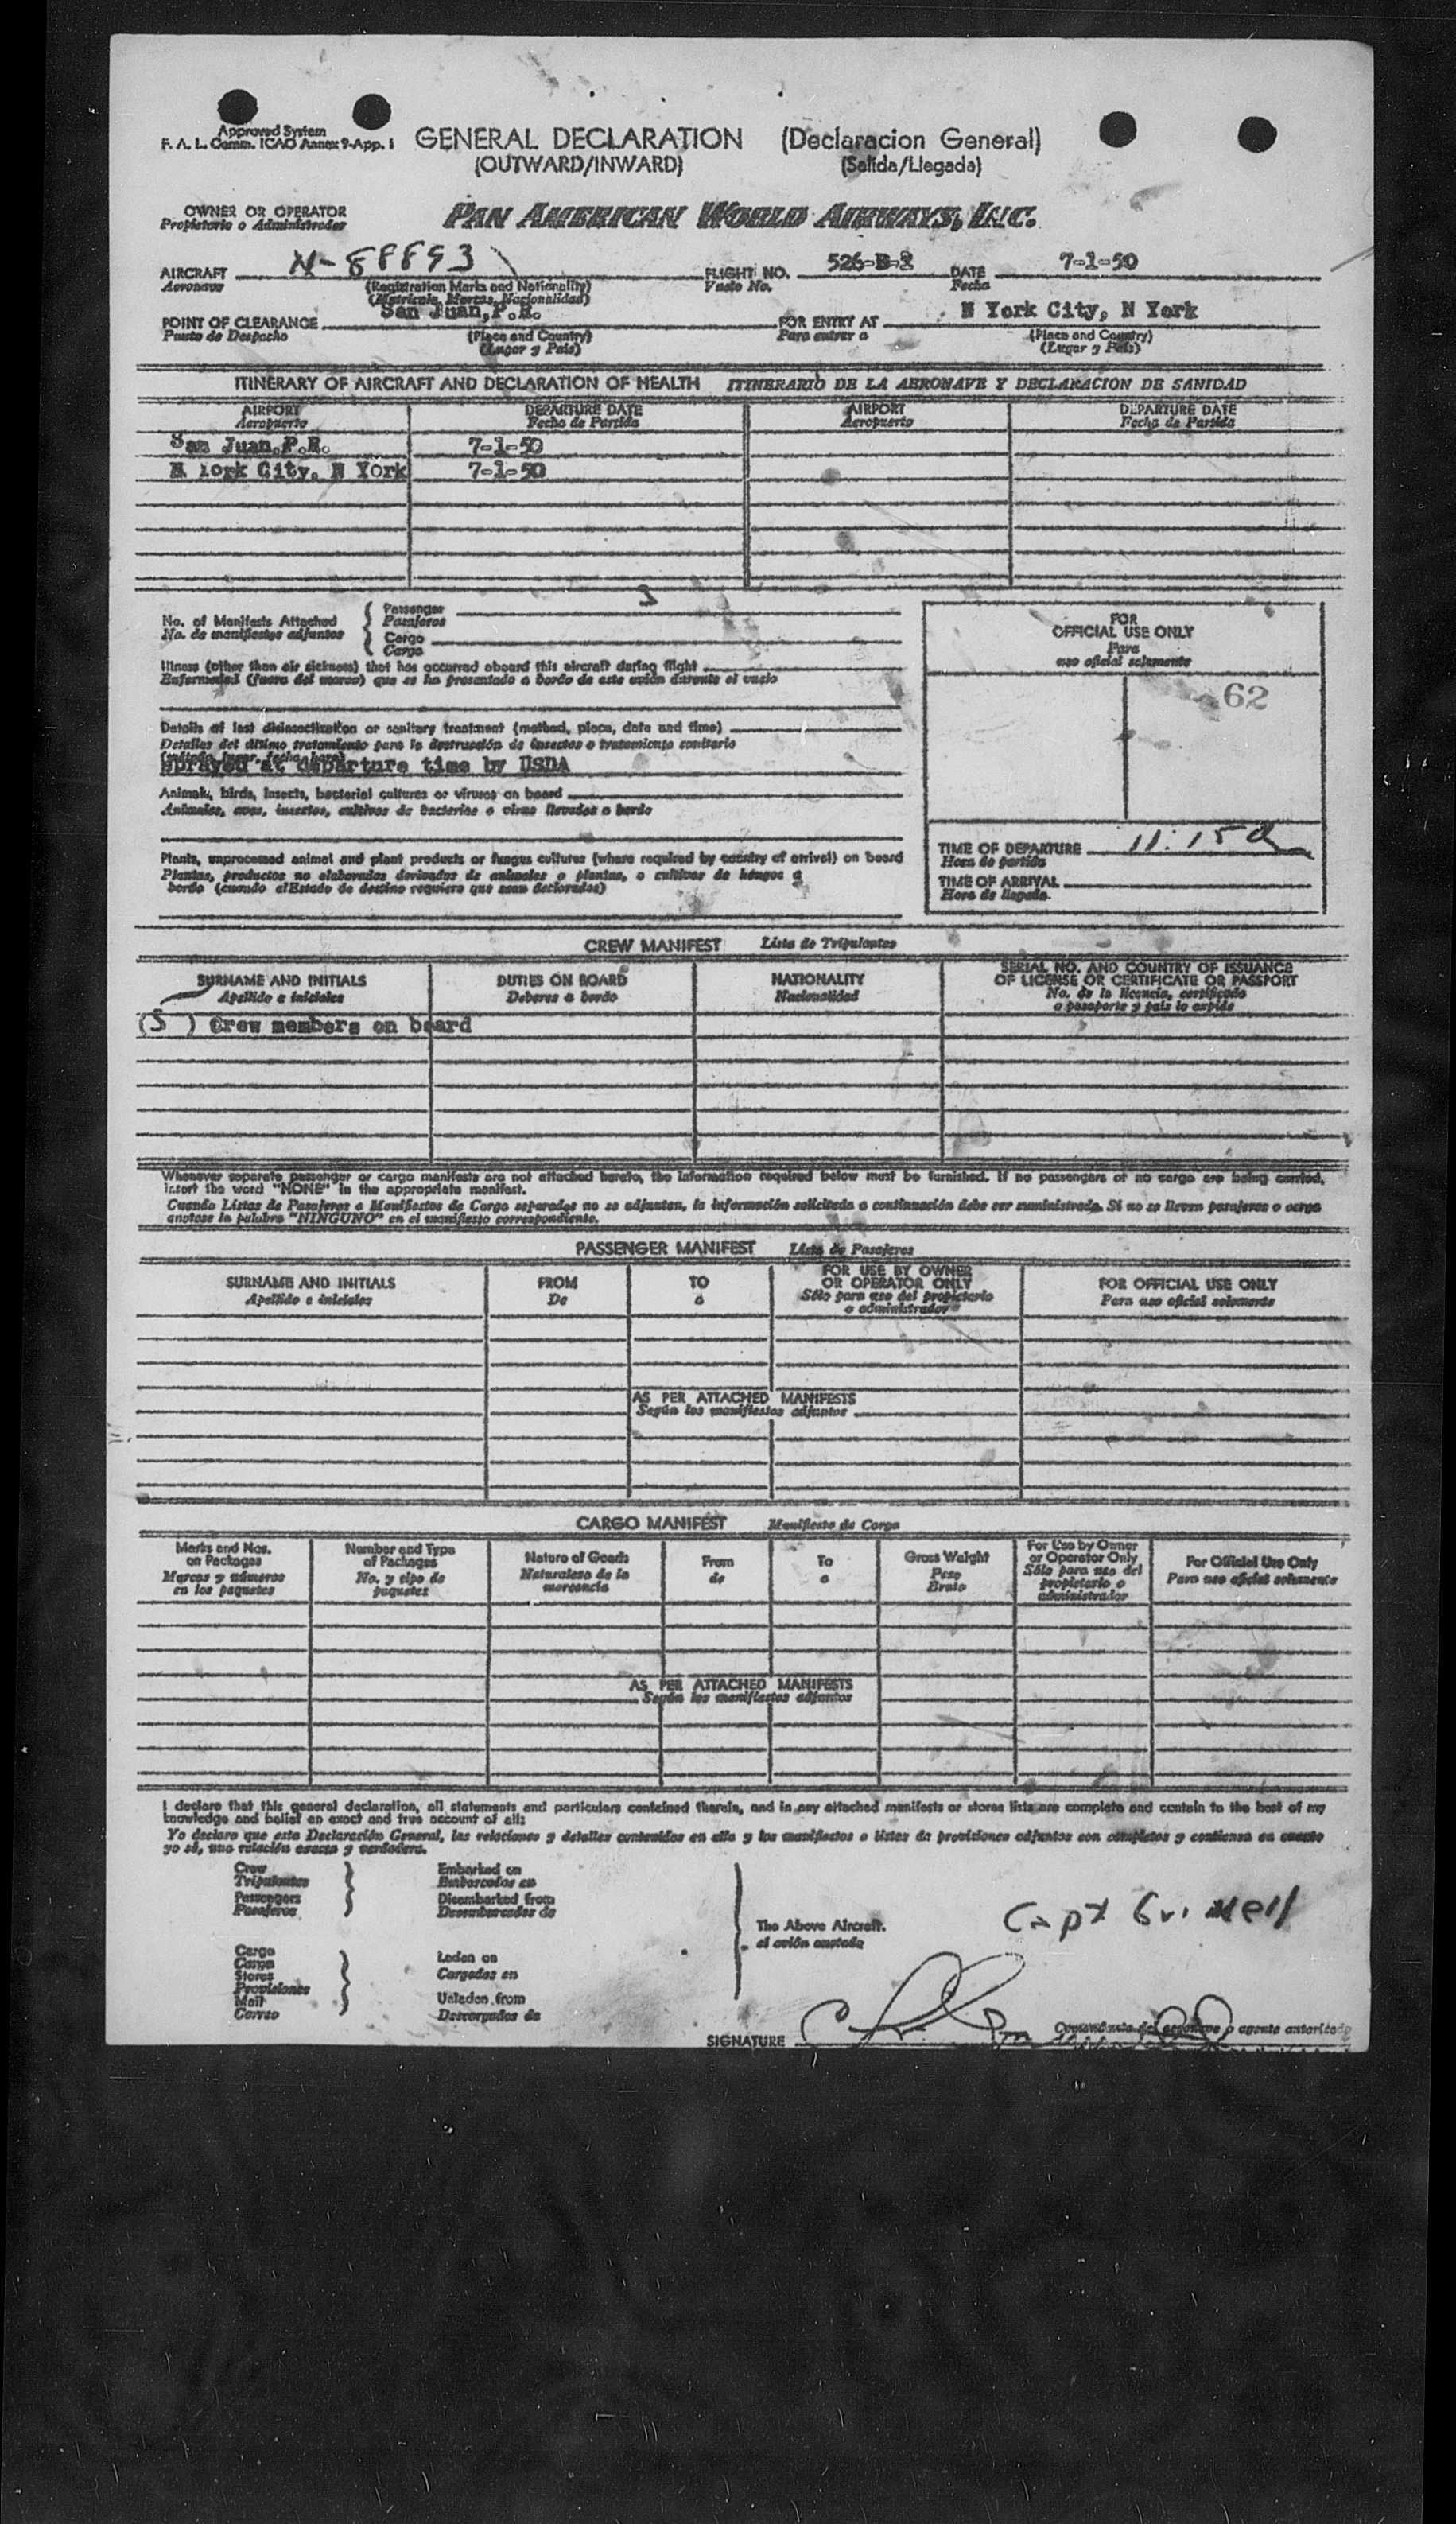 Approved System
F. A. L. Comm. ICAO Annex 9-App. 1
GENERAL DECLARATION (Declaracion General)
(OUTWARD/INWARD) (Salida/Llegada)
OWNER OR OPERATOR PAN AMERICAN WORLD AIRWAYS, INC.
Propietario o Administrador
AIRCRAFT N-88893 FLIGHT NO. 526-B-2 DATE 7-1-50
Aeronave (Registration Marks and Nationality) Vuelo No. Fecha
(Matricula, Marcas, Nacionalidad)
POINT OF CLEARANCE San Juan, P.R. FOR ENTRY AT N York City, N York
Puesto de Despacho (Place and Country) Para entrar a (Place and Country)
(Lugar y País) (Lugar y País)
ITINERARY OF AIRCRAFT AND DECLARATION OF HEALTH ITINERARIO DE LA AERONAVE Y DECLARACION DE SANIDAD
AIRPORT DEPARTURE DATE AIRPORT DEPARTURE DATE
Aeropuerto Fecha de Partida Aeropuerto Fecha de Partida
San Juan,P.R. 7-1-50
N York City, N York 7-1-50
No. of Manifests Attached Passenger 3
No. de manifiestos adjuntos Pasajeros
Cargo
Carga
Illness (other than air sickness) that has occurred aboard this aircraft during flight
Enfermedad (fuera del mareo) que se ha presentado a bordo de este avión durante el vuelo
Details of last disinsectization or sanitary treatment (method, place, date and time)
Detalles del último tratamiento para la destrucción de insectos o tratamiento sanitario
(método, lugar, fecha, hora)
Sprayed at departure time by USDA
Animals, birds, insects, bacterial cultures or viruses on board
Animales, aves, insectos, cultivos de bacterias o virus llevados a bordo
Plants, unprocessed animal and plant products or fungus cultures (where required by country of arrival) on board
Plantas, productos no elaborados derivados de animales o plantas, o cultivos de hongos a
bordo (cuando el Estado de destino requiere que sean declarados)
FOR
OFFICIAL USE ONLY
Para
uso oficial solamente
62
TIME OF DEPARTURE 11:15a
Hora de partida
TIME OF ARRIVAL
Hora de llegada
CREW MANIFEST Lista de Tripulantes
SURNAME AND INITIALS DUTIES ON BOARD NATIONALITY SERIAL NO. AND COUNTRY OF ISSUANCE
OF LICENSE OR CERTIFICATE OR PASSPORT
Apellido e iniciales Deberes a bordo Nacionalidad No. de la licencia, certificado
o pasaporte y país lo expide
(5) Crew members on board
Whenever separate passenger or cargo manifests are not attached hereto, the information required below must be furnished. If no passengers or no cargo are being carried,
insert the word "NONE" in the appropriate manifest.
Cuando Listas de Pasajeros o Manifiestos de Carga separados no se adjuntan, la información solicitada a continuación debe ser suministrada. Si no se llevan pasajeros o carga
anotese la palabra "NINGUNO" en el manifiesto correspondiente.
PASSENGER MANIFEST Lista de Pasajeros
SURNAME AND INITIALS FROM TO FOR USE BY OWNER
OR OPERATOR ONLY FOR OFFICIAL USE ONLY
Apellido e iniciales De a Sólo para uso del propietario
o administrador Para uso oficial solamente
AS PER ATTACHED MANIFESTS
Según los manifiestos adjuntos
CARGO MANIFEST Manifiesto de Carga
Marks and Nos.
on Packages
Marcas y números
en los paquetes
Number and Type
of Packages
No. y tipo de
paquetes
Nature of Goods
Naturaleza de la
mercancia
From
de
To
a
Gross Weight
Peso
Bruto
For Use by Owner
or Operator Only
Sólo para uso del
propietario o
administrador
For Official Use Only
Para uso oficial solamente
AS PER ATTACHED MANIFESTS
Según los manifiestos adjuntos
I declare that this general declaration, all statements and particulars contained therein, and in any attached manifests or stores lists are complete and contain to the best of my
knowledge and belief an exact and true account of all:
Yo declaro que esta Declaración General, las relaciones y detalles contenidos en ella y los manifiestos o listas de provisiones adjuntos son completos y contienen en cuanto
yo sé, una relación exacta y verdadera.
Crew
Tripulantes
Passengers
Pasajeros
Embarked on
Embarcados en
Disembarked from
Desembarcados de
Cargo
Carga
Stores
Provisiones
Mail
Correo
Laden on
Cargados en
Unladen from
Descargados de
The Above Aircraft.
el avión anotado
Capt Grinnell
SIGNATURE
Comandante del aeronave o agente autorizado